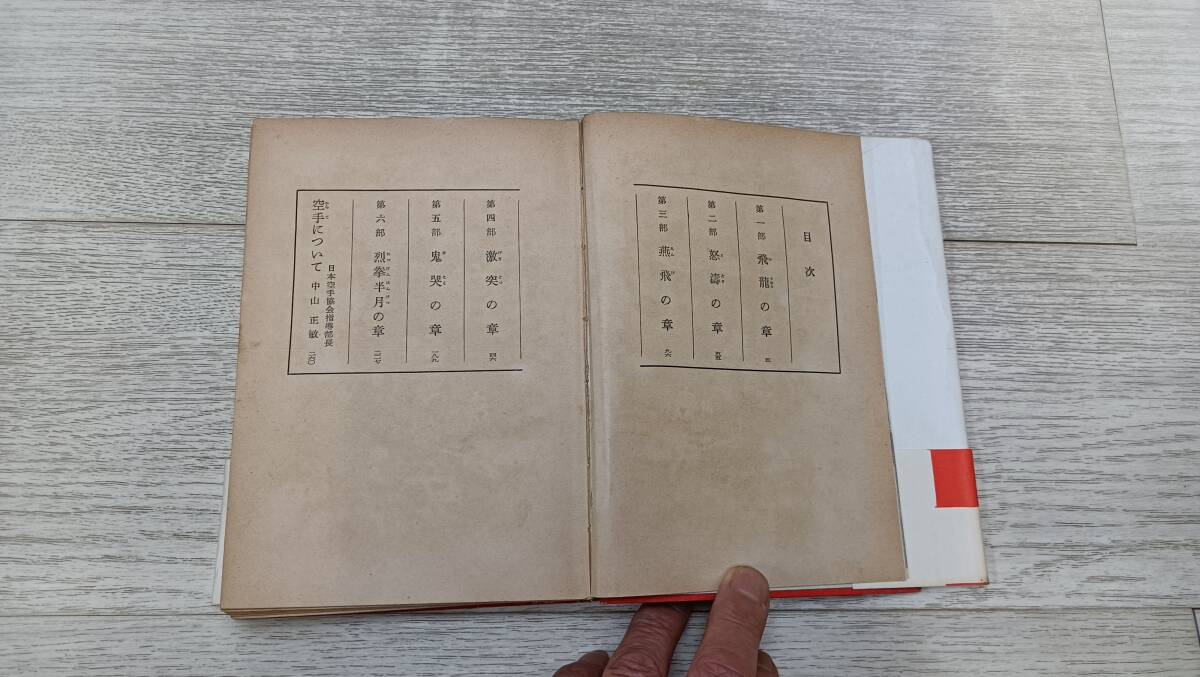 目次
第一部 飛龍の章 三
第二部 怒濤の章
第三部 燕飛の章 九六
第四部 激突の章
第五部 鬼哭の章 一八九
第六部 烈拳半月の章
空手について 日本空手協会指導部長 中山正敏